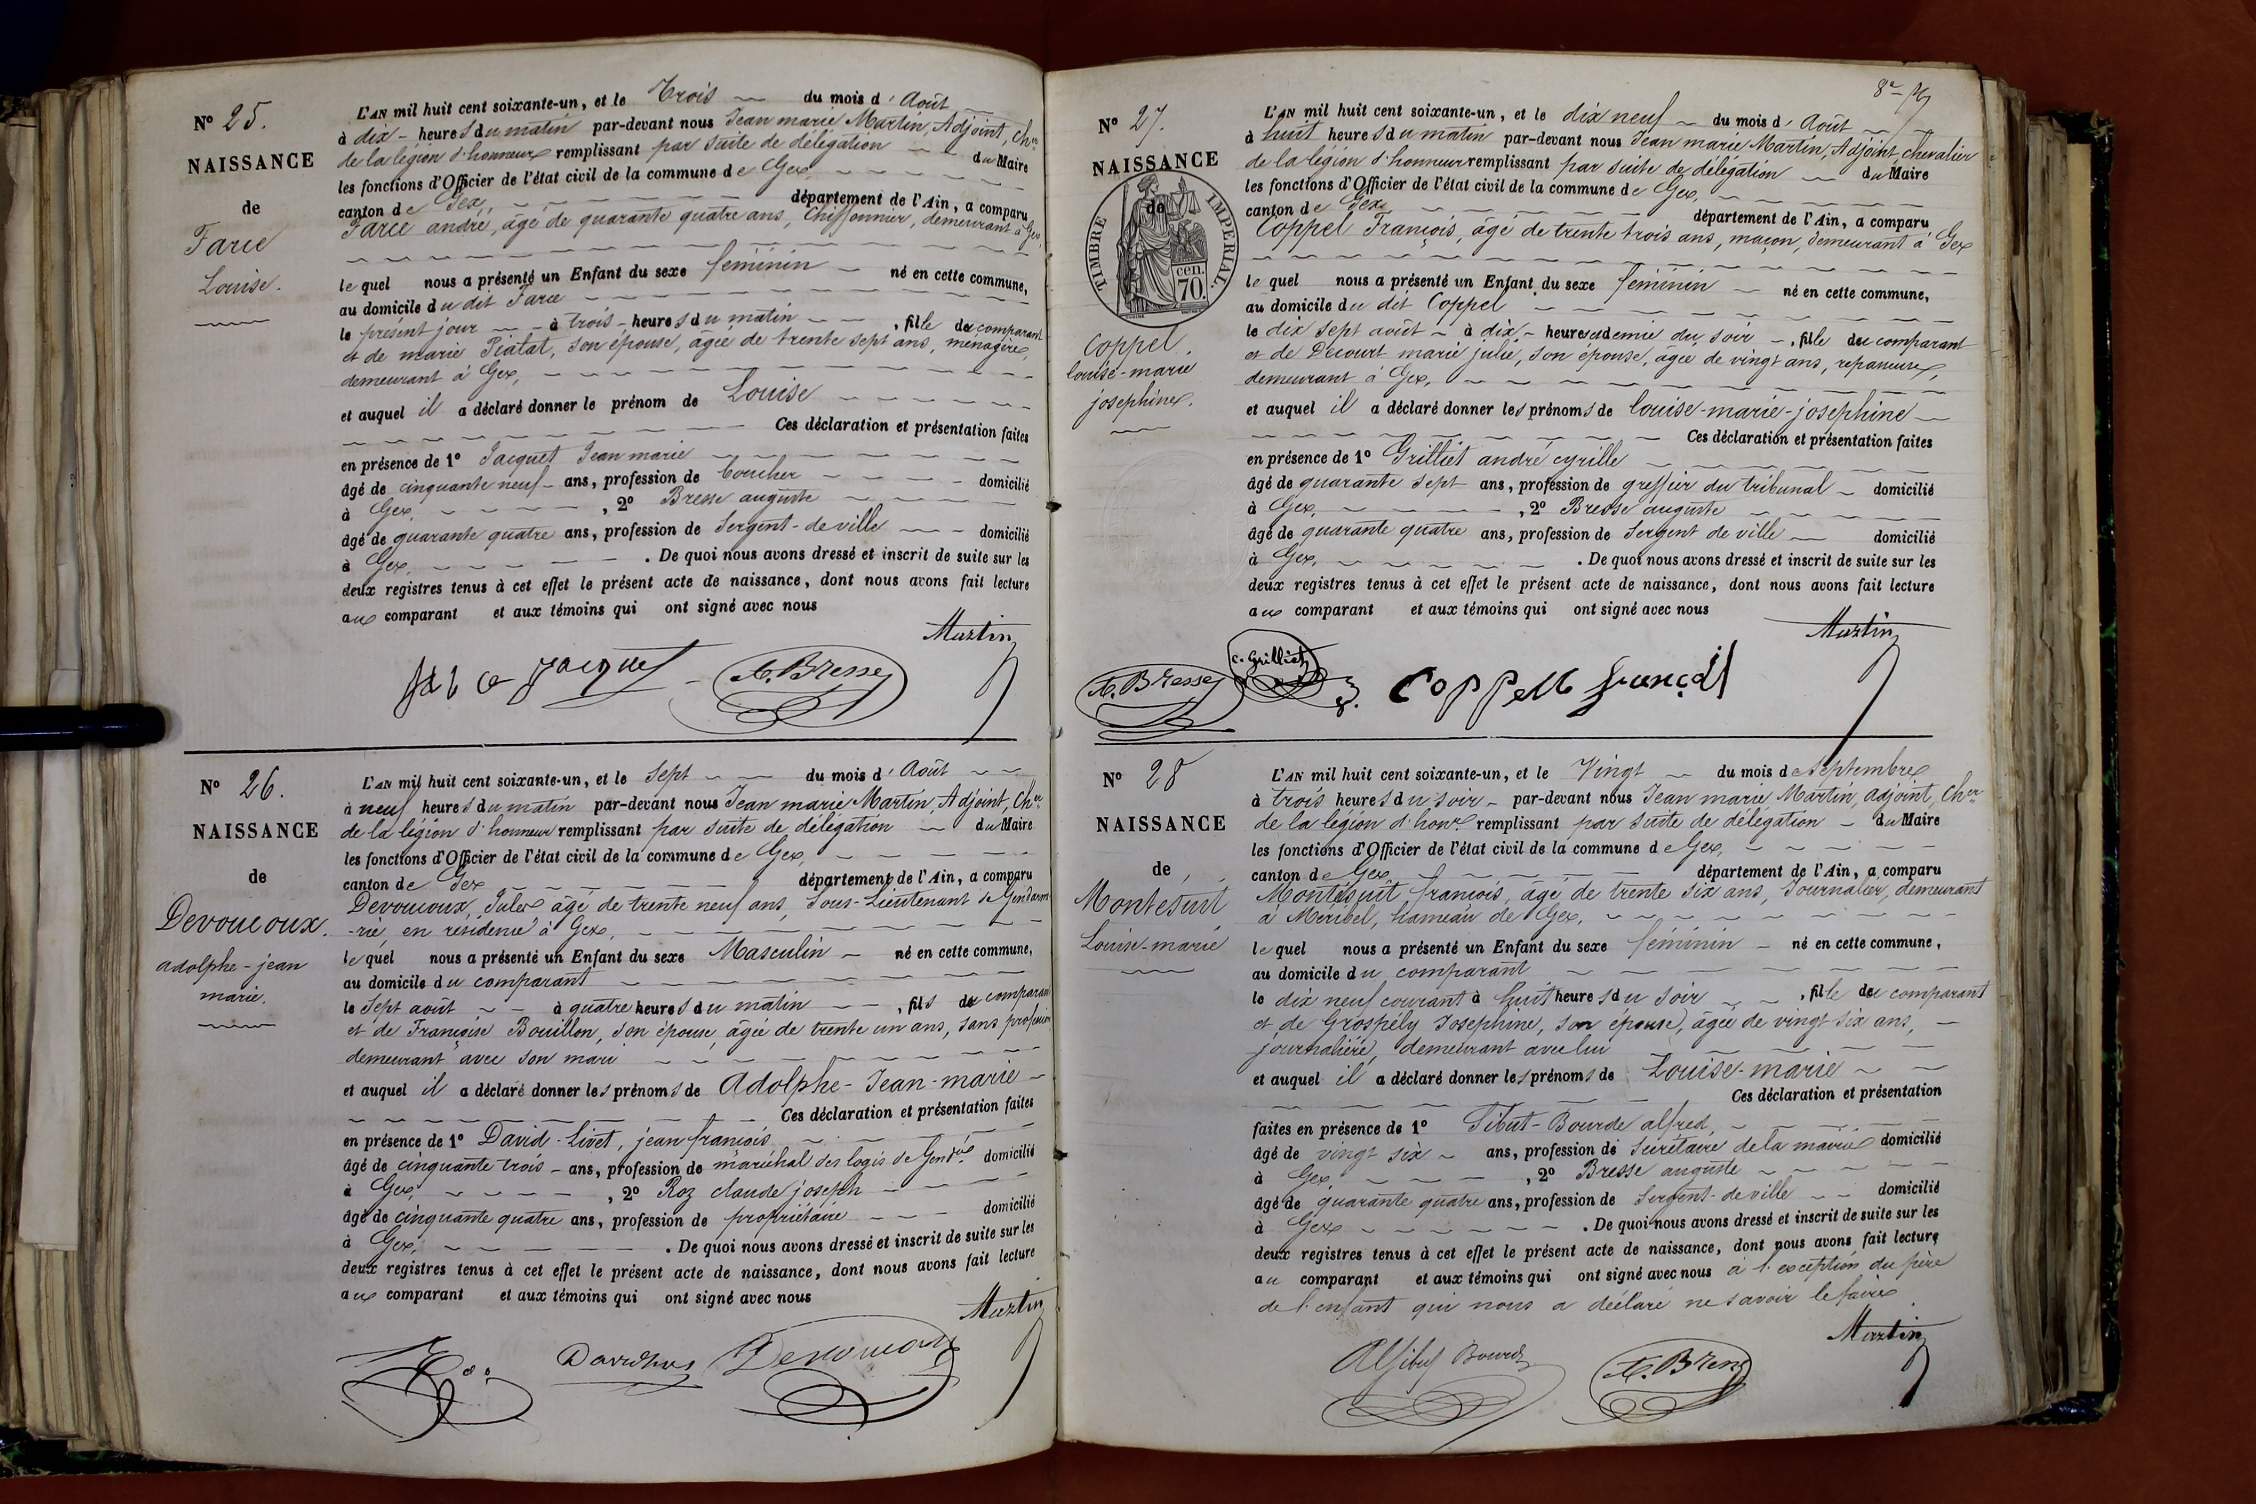 N° 25.
NAISSANCE
de
Farce
Louise.
L'AN mil huit cent soixante-un, et le Trois du mois d'Août
à dix heures du matin par-devant nous Jean marie Martin, Adjoint, Cher
de la légion d'honneur remplissant par suite de délégation du Maire
les fonctions d'Officier de l'état civil de la commune de Gex,
canton de Gex, département de l'Ain, a comparu
Farce andré, âgé de quarante quatre ans, Chiffonnier, demeurant à Gex,
le quel nous a présenté un Enfant du sexe féminin né en cette commune,
au domicile du dit Farce
le présent jour à trois heures du matin, fille du comparant
et de marie Piatat, son épouse, âgée de trente sept ans, ménagère,
demeurant à Gex,
et auquel il a déclaré donner le prénom de Louise
Ces déclaration et présentation faites
en présence de 1° Jacquet Jean marie
âgé de cinquante neuf ans, profession de boucher domicilié
à Gex, 2° Bresse auguste
âgé de quarante quatre ans, profession de Sergent-de ville domicilié
à Gex. De quoi nous avons dressé et inscrit de suite sur les
deux registres tenus à cet effet le présent acte de naissance, dont nous avons fait lecture
aux comparant et aux témoins qui ont signé avec nous
Martin
Jacquet A. Bresse
N° 26.
NAISSANCE
de
Devoucoux.
adolphe-jean
marie.
L'AN mil huit cent soixante-un, et le Sept du mois d'Août
à neuf heures du matin par-devant nous Jean marie Martin, Adjoint, Cher
de la légion d'honneur remplissant par suite de délégation du Maire
les fonctions d'Officier de l'état civil de la commune de Gex,
canton de Gex département de l'Ain, a comparu
Devoucoux, Jules âgé de trente neuf ans, Sous-Lieutenant de Gendarme
-rie, en residence à Gex,
le quel nous a présenté un Enfant du sexe Masculin né en cette commune,
au domicile du comparant
le Sept août à quatre heures du matin, fils du comparant
et de Françoise Bouillon, son épouse, âgée de trente un ans, sans profession
demeurant avec son mari
et auquel il a déclaré donner les prénoms de Adolphe-Jean-marie
Ces déclaration et présentation faites
en présence de 1° David-Livet, jean francois
âgé de cinquante trois ans, profession de maréhal des logis de Gendie domicilié
à Gex, 2° Roz claude joseph
âgé de cinquante quatre ans, profession de propriétaire domicilié
à Gex, . De quoi nous avons dressé et inscrit de suite sur les
deux registres tenus à cet effet le présent acte de naissance, dont nous avons fait lecture
aux comparant et aux témoins qui ont signé avec nous
Martin
Devoucoux
8e
N° 27.
NAISSANCE
de
TIMBRE IMPERIAL.
cen.
70.
Coppel.
louise-marie
josephine.
L'AN mil huit cent soixante-un, et le dix neuf du mois d'Août
à huit heures du matin par-devant nous Jean marie Martin, Adjoint, chevalier
de la légion d'honneur remplissant par suite de délégation du Maire
les fonctions d'Officier de l'état civil de la commune de Gex,
canton de Gex département de l'Ain, a comparu
Coppel François, âgé de trente trois ans, maçon, demeurant à Gex
le quel nous a présenté un Enfant du sexe féminin né en cette commune,
au domicile du dit Coppel
le dix sept août à dix heures et demie du soir, fille du comparant
et de Decourt marie julie, son épouse, âgée de vingt ans, repasseuse,
demeurant à Gex,
et auquel il a déclaré donner les prénoms de louise-marie-josephine
Ces déclaration et présentation faites
en présence de 1° Grilliet andré cyrille
âgé de quarante sept ans, profession de greffier du tribunal domicilié
à Gex, 2° Bresse auguste
âgé de quarante quatre ans, profession de Sergent de ville domicilié
à Gex, . De quoi nous avons dressé et inscrit de suite sur les
deux registres tenus à cet effet le présent acte de naissance, dont nous avons fait lecture
aux comparant et aux témoins qui ont signé avec nous
Martin
A. Bresse c. Grilliet Coppel françois
N° 28
NAISSANCE
de
Montésuit
Louise-marie
L'AN mil huit cent soixante-un, et le Vingt du mois de Septembre
à trois heures du soir par-devant nous Jean marie Martin, adjoint, Cher
de la légion d'honr remplissant par suite de délégation du Maire
les fonctions d'Officier de l'état civil de la commune de Gex,
canton de Gex département de l'Ain, a comparu
Montésuit francois, âgé de trente six ans, Journalier, demeurant
à Méribel, hameau de Gex,
le quel nous a présenté un Enfant du sexe féminin né en cette commune,
au domicile du comparant
le dix neuf courant à huit heures du soir, fille du comparant
et de Grospély Josephine, son épouse, âgée de vingt six ans,
journalière, demeurant avec lui
et auquel il a déclaré donner les prénoms de Louise-marie
Ces déclaration et présentation
faites en présence de 1° Sibut-Bourde alfred,
âgé de vingt six ans, profession de Secrétaire de la mairie domicilié
à Gex, 2° Bresse auguste
âgé de quarante quatre ans, profession de Sergent-de ville domicilié
à Gex . De quoi nous avons dressé et inscrit de suite sur les
deux registres tenus à cet effet le présent acte de naissance, dont nous avons fait lecture
au comparant et aux témoins qui ont signé avec nous à l'exception du père
de l'enfant qui nous a déclaré ne savoir le faire
Martin
A. Bresse